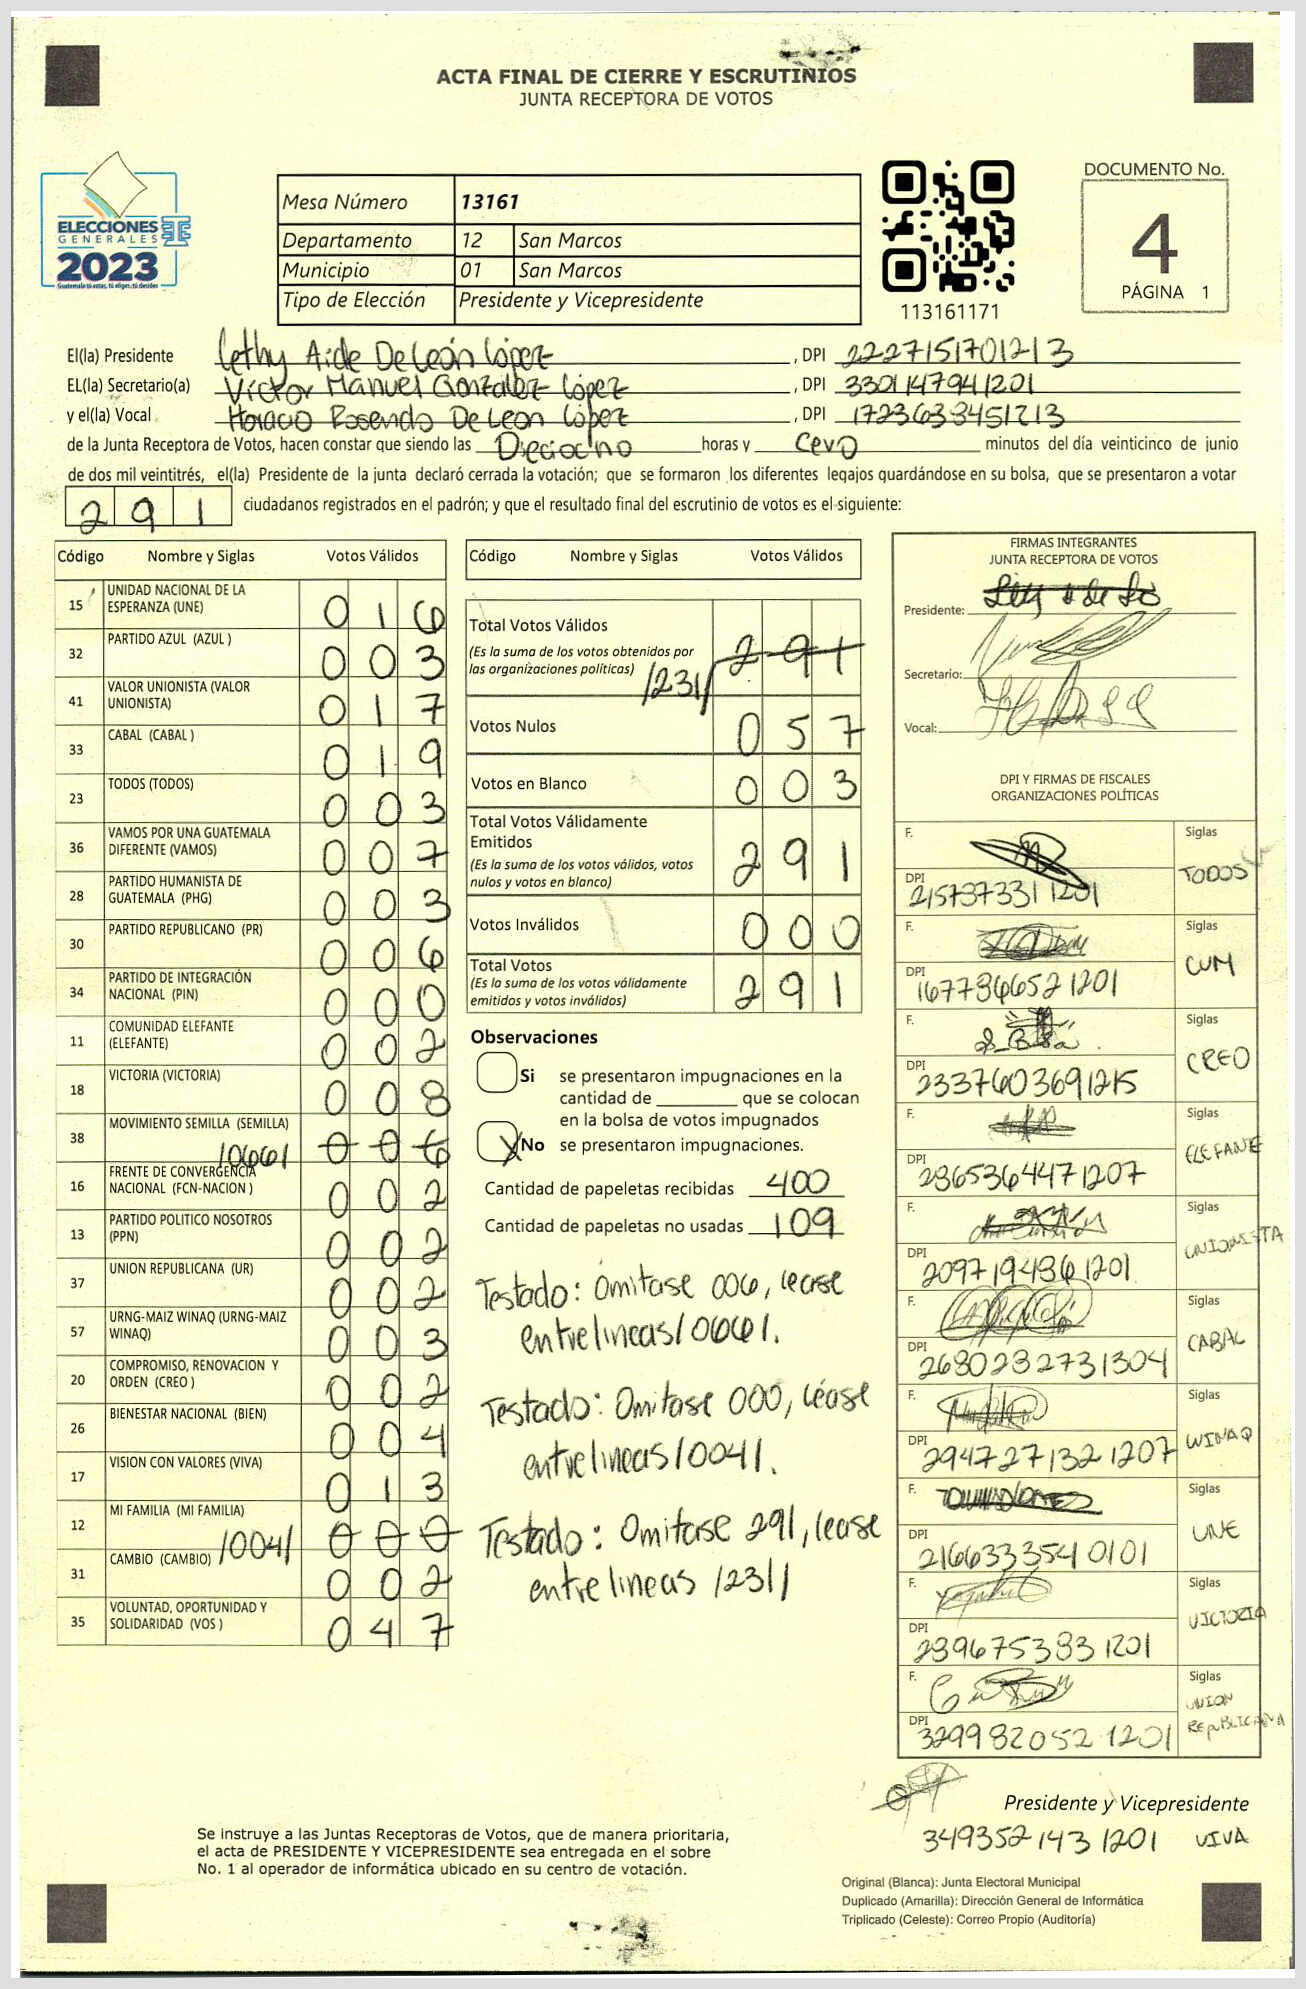 ACTA FINAL DE CIERRE Y ESCRUTINIOS
JUNTA RECEPTORA DE VOTOS
ELECCIONES
GENERALES
2023
Guatemala tú votas, tú eliges, tú decides
Mesa Número 13161
Departamento 12 San Marcos
Municipio 01 San Marcos
Tipo de Elección Presidente y Vicepresidente
113161171
DOCUMENTO No.
4
PÁGINA 1
El(la) Presidente Lethy Aide De León López, DPI 2227151701213
EL(la) Secretario(a) Víctor Manuel González López, DPI 3301147941201
y el(la) Vocal Horacio Rosendo De León López, DPI 1723633451213
de la Junta Receptora de Votos, hacen constar que siendo las Dieciocho horas y cero minutos del día veinticinco de junio
de dos mil veintitrés, el(la) Presidente de la junta declaró cerrada la votación; que se formaron los diferentes legajos guardándose en su bolsa, que se presentaron a votar
291 ciudadanos registrados en el padrón; y que el resultado final del escrutinio de votos es el siguiente:
Código Nombre y Siglas Votos Válidos
15 UNIDAD NACIONAL DE LA ESPERANZA (UNE) 016
32 PARTIDO AZUL (AZUL ) 003
41 VALOR UNIONISTA (VALOR UNIONISTA) 017
33 CABAL (CABAL ) 019
23 TODOS (TODOS) 003
36 VAMOS POR UNA GUATEMALA DIFERENTE (VAMOS) 007
28 PARTIDO HUMANISTA DE GUATEMALA (PHG) 003
30 PARTIDO REPUBLICANO (PR) 006
34 PARTIDO DE INTEGRACIÓN NACIONAL (PIN) 000
11 COMUNIDAD ELEFANTE (ELEFANTE) 002
18 VICTORIA (VICTORIA) 008
38 MOVIMIENTO SEMILLA (SEMILLA) /066/ 006
16 FRENTE DE CONVERGENCIA NACIONAL (FCN-NACION ) 002
13 PARTIDO POLITICO NOSOTROS (PPN) 002
37 UNION REPUBLICANA (UR) 002
57 URNG-MAIZ WINAQ (URNG-MAIZ WINAQ) 003
20 COMPROMISO, RENOVACION Y ORDEN (CREO ) 002
26 BIENESTAR NACIONAL (BIEN) 004
17 VISION CON VALORES (VIVA) 013
12 MI FAMILIA (MI FAMILIA) /004/ 000
31 CAMBIO (CAMBIO) 002
35 VOLUNTAD, OPORTUNIDAD Y SOLIDARIDAD (VOS ) 047
Código Nombre y Siglas Votos Válidos
Total Votos Válidos
(Es la suma de los votos obtenidos por
las organizaciones políticas) /231/ 291
Votos Nulos 057
Votos en Blanco 003
Total Votos Válidamente
Emitidos
(Es la suma de los votos válidos, votos
nulos y votos en blanco) 291
Votos Inválidos 000
Total Votos
(Es la suma de los votos válidamente
emitidos y votos inválidos) 291
Observaciones
Si se presentaron impugnaciones en la
cantidad de ________ que se colocan
en la bolsa de votos impugnados
X No se presentaron impugnaciones.
Cantidad de papeletas recibidas 400
Cantidad de papeletas no usadas 109
Testado: Omitase 006, lease
entrelineas/066/.
Testado: Omitase 000, léase
entrelineas/004/.
Testado: Omitase 291, lease
entre lineas /231/
FIRMAS INTEGRANTES
JUNTA RECEPTORA DE VOTOS
Presidente:
Secretario:
Vocal:
DPI Y FIRMAS DE FISCALES
ORGANIZACIONES POLÍTICAS
F. Siglas
DPI 2157373311201 TODOS
F. Siglas
DPI 1677366521201 CUM
F. Siglas
DPI 2337603691215 CREO
F. Siglas
DPI 2365364471207 ELEFANE
F. Siglas
DPI 2097194361201 UNIONISTA
F. Siglas
DPI 2680232731304 CABAL
F. Siglas
DPI 2947271321207 WINAQ
F. Siglas
DPI 2166333540101 UNE
F. Siglas
DPI 2396753831201 VICTORIA
F. Siglas
DPI 3299820521201 UNION REPUBLICANA
Presidente y Vicepresidente
3493521431201 VIVA
Se instruye a las Juntas Receptoras de Votos, que de manera prioritaria,
el acta de PRESIDENTE Y VICEPRESIDENTE sea entregada en el sobre
No. 1 al operador de informática ubicado en su centro de votación.
Original (Blanca): Junta Electoral Municipal
Duplicado (Amarilla): Dirección General de Informática
Triplicado (Celeste): Correo Propio (Auditoría)